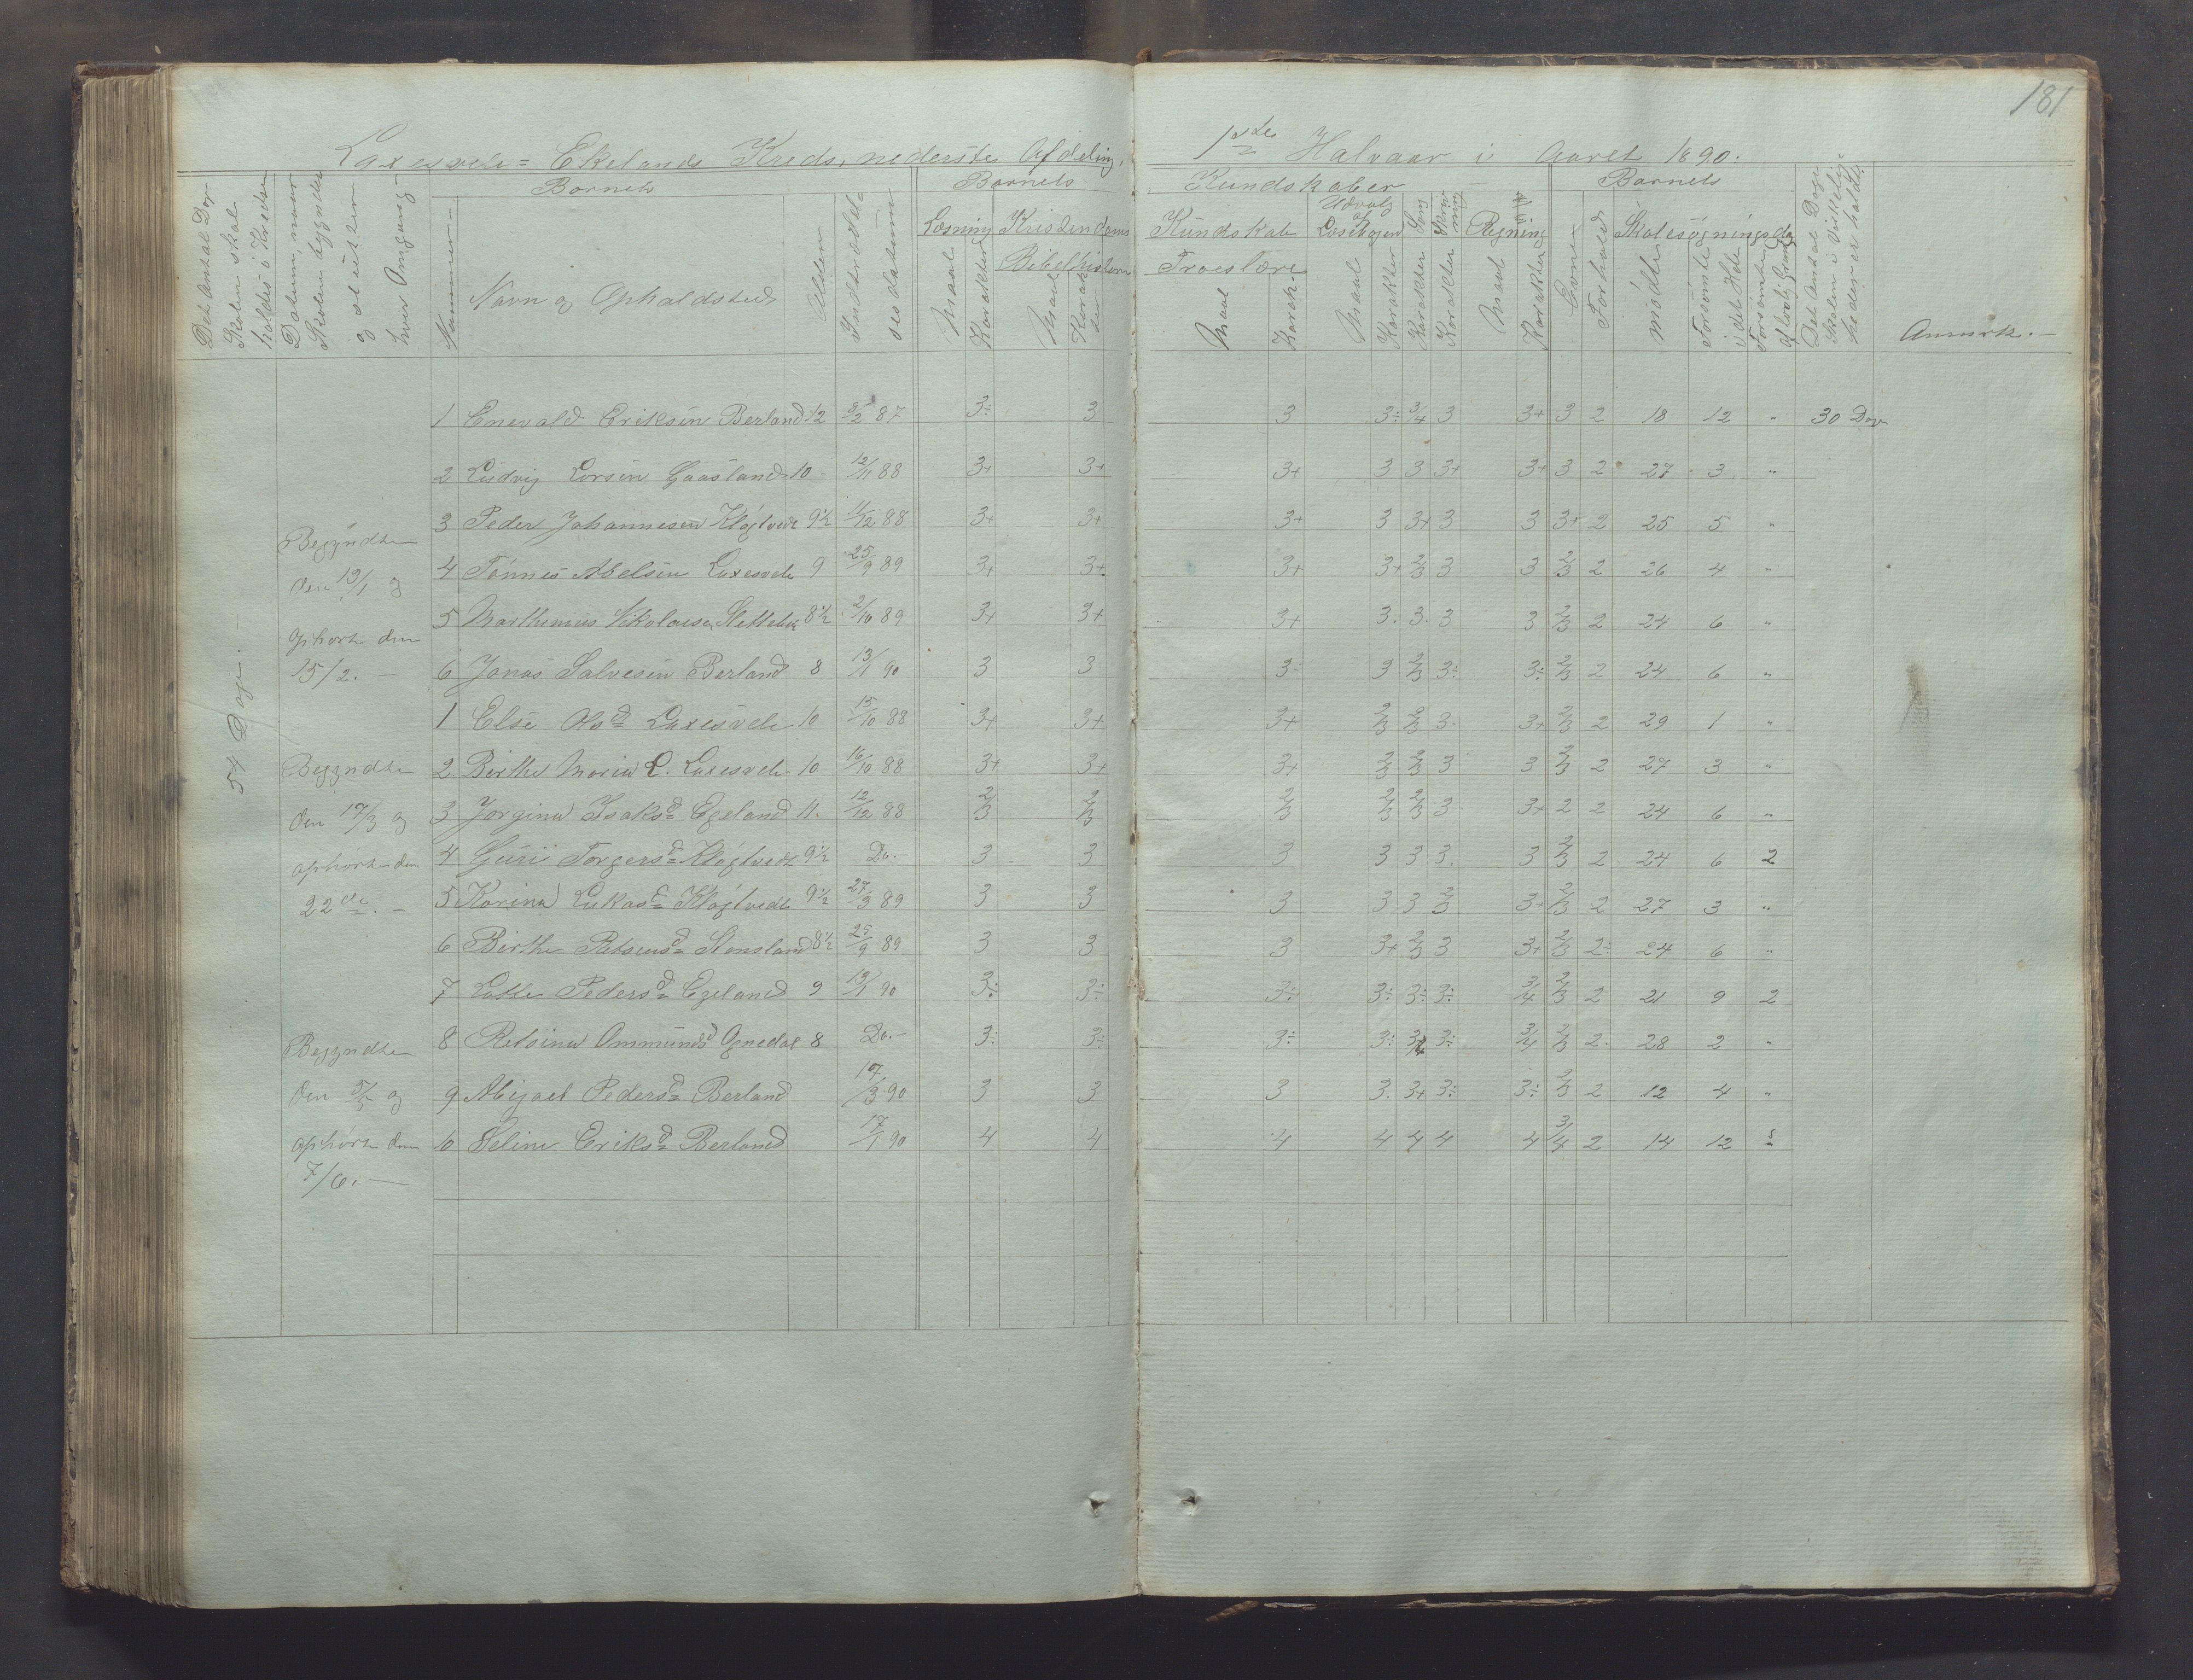 181
Laxesvele = Ekelands Kreds, nederste Afdeling, 1ste Halvaar i Aaret 1890.
Det Antal Dage Skolen skal holdes i Kredsen
Datum, naar Skolen begynder og slutter hver Omgang
Barnets
Nummer
Navn og Opholdssted
Alder
Indtrædelsesdatum
Barnets Kundskaber
Læsning
Maal
Karakter
Kristendoms Kundskab
Bibelhistorie
Maal
Karakter
Troeslære
Maal
Karak.
Udvalg af Læsebogen
Maal
Karakter
Sang
Karakter
Skrivning
Karakter
Regning
Maal
Karakter
Barnets
Evner
Forhold
Skolesøgningsdage
mødte
forsømte i det Hele
forsømte af lovlig Grund
Det Antal Dage Skolen i Virkelighed er holdt
Anmærk.
54 Dage.
Begyndte den 13/1 og
Ophørte den 15/2.
Begyndte den 17/3 og
ophørte den 22de.
Begyndte den 5/5 og
ophørte den 7/6.
1 Enevald Eriksen Berland 12 3/2 87 3÷ 3 3 3÷ 3/4 3 3+ 3 2 18 12 " 30 Dage
2 Ludvig Larsen Gaasland 10 12/11 88 3+ 3+ 3+ 3 3 3+ 3+ 3 2 27 3 "
3 Peder Johannesen Kløgtvedt 9½ 11/12 88 3+ 3+ 3+ 3 3+ 3 3 3+ 2 25 5 "
4 Tønnes Abelsen Laxesvele 9 25/9 89 3+ 3+ 3+ 3+ 2/3 3 3 2/3 2 26 4 "
5 Marthinius Nikolaisen Slettebø 8½ 2/10 89 3+ 3+ 3+ 3. 3. 3 3 2/3 2 24 6 "
6 Jonas Salvesen Berland 8 13/1 90 3 3 3÷ 3 2/3 3÷ 3÷ 2/3 2 24 6 "
1 Else Olsd Laxesvele 10 15/10 88 3+ 3+ 3+ 2/3 2/3 3 3+ 2/3 2 29 1 "
2 Berthe Maria L. Laxesvele 10 16/10 88 3+ 3+ 3+ 2/3 2/3 3 3 2/3 2 27 3 "
3 Jorgine Isaksd Egeland 11. 12/12 88 2/3 2/3 2/3 2/3 2/3 3 3+ 2 2 24 6 "
4 Guri Torgersd Kløgtvedt 9½ Do. 3 3 3 3 3 3. 3 2/3 2 24 6 2
5 Karina Lukasd Kløgtvedt 9½ 27/3 89 3 3 3 3 3 2/3 3+ 2/3 2 27 3 "
6 Berthe Stensland 8½ 25/9 89 3 3 3 3+ 2/3 3 3+ 2/3 2÷ 24 6 "
7 Lotte Pedersd Egeland 9 13/1 90 3÷ 3÷ 3÷ 3÷ 3÷ 3÷ 3/4 2/3 2 21 9 2
8 Retsine Ommundsd Ognedal 8 Do. 3÷ 3÷ 3÷ 3÷ 3/4 3÷ 3/4 2/3 2 28 2 "
9 Abigael Pedersd Berland 17/3 90 3 3 3 3. 3+ 3÷ 3÷ 2/3 2 12 4 "
10 Seline Eriksd Berland 17/1 90 4 4 4 4 4 4 4 3/4 2 14 12